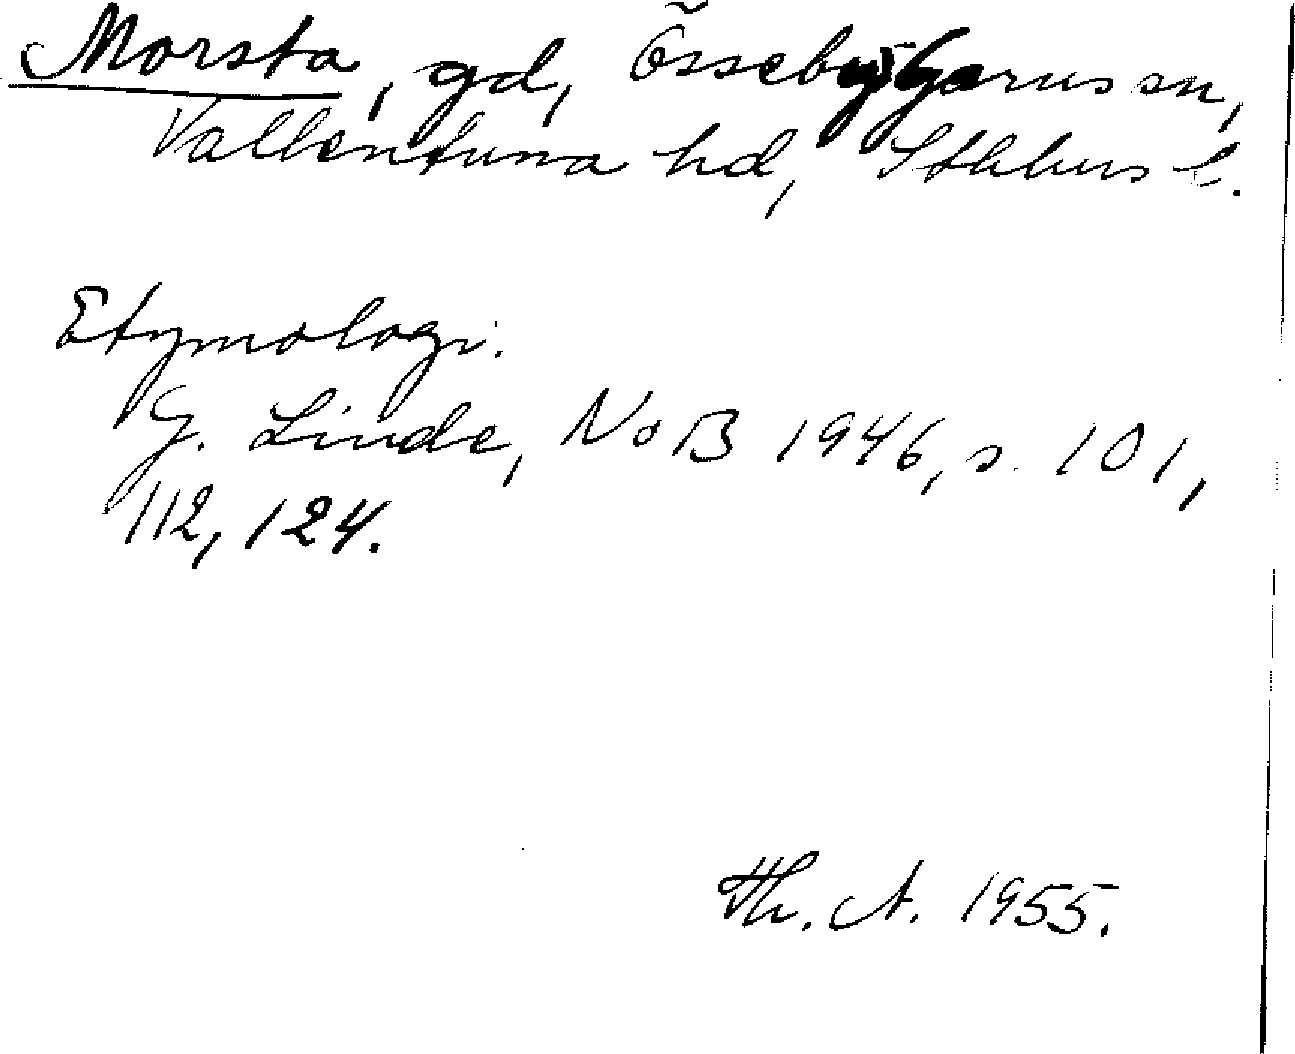 Morsta, gd, Össeby-Garns sn,
Vallentuna hd, Sthlms l.
Etymologi.
G. Linde, NoB 1946, s. 101,
112, 124.
Th. A. 1955.